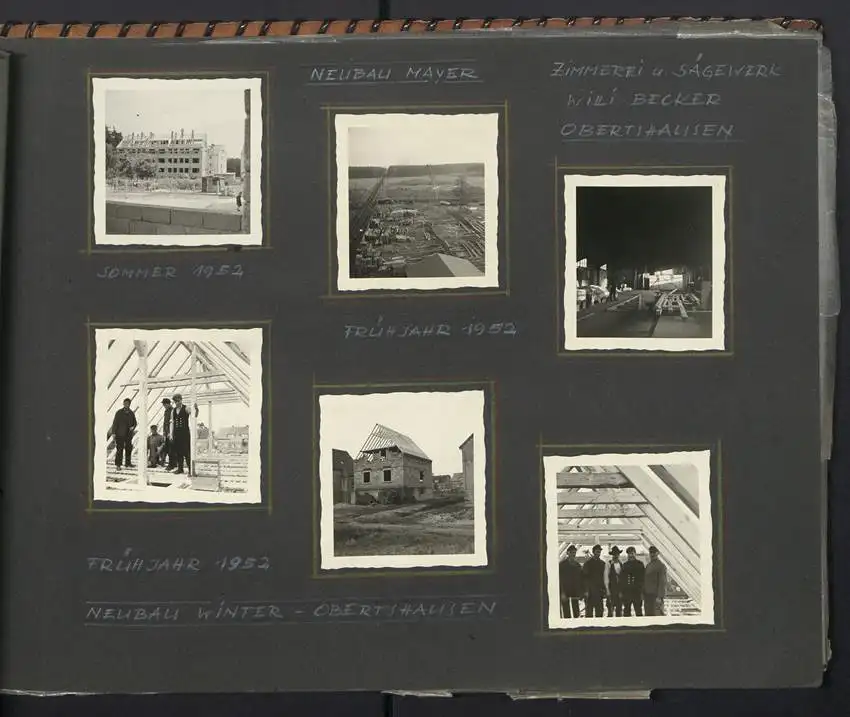 NEUBAU MAYER
ZIMMEREI u. SÄGEWERK
WILLI BECKER
OBERTSHAUSEN
SOMMER 1952
FRÜHJAHR 1952
FRÜHJAHR 1952
NEUBAU WINTER - OBERTSHAUSEN